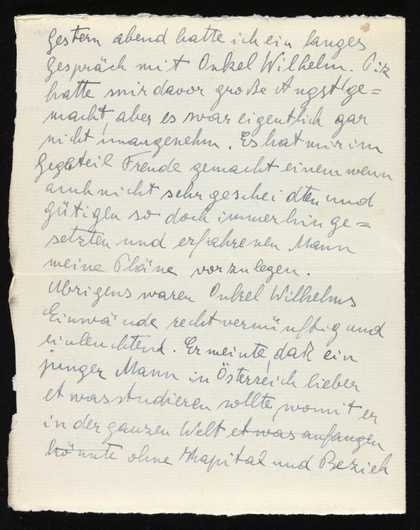 gestern abend hatte ich ein langes
Gespräch mit Onkel Wilhelm. Ihr
hatte mir davor große Angst ge=
macht, aber es war eigentlich gar
nicht unangenehm. Es hat mir im
Gegenteil Freude gemacht einem wenn
auch nicht sehr gescheidten und
gütigen so doch immerhin ge=
setzten und erfahrenen Mann
meine Pläne vorzulegen.
Übrigens waren Onkel Wilhelms
Einwände recht vernünftig und
einleuchtend. Er meinte, daß ein
junger Mann in Österreich lieber
etwas studieren sollte, womit er
in der ganzen Welt etwas anfangen
könnte ohne Kapital und Bezieh